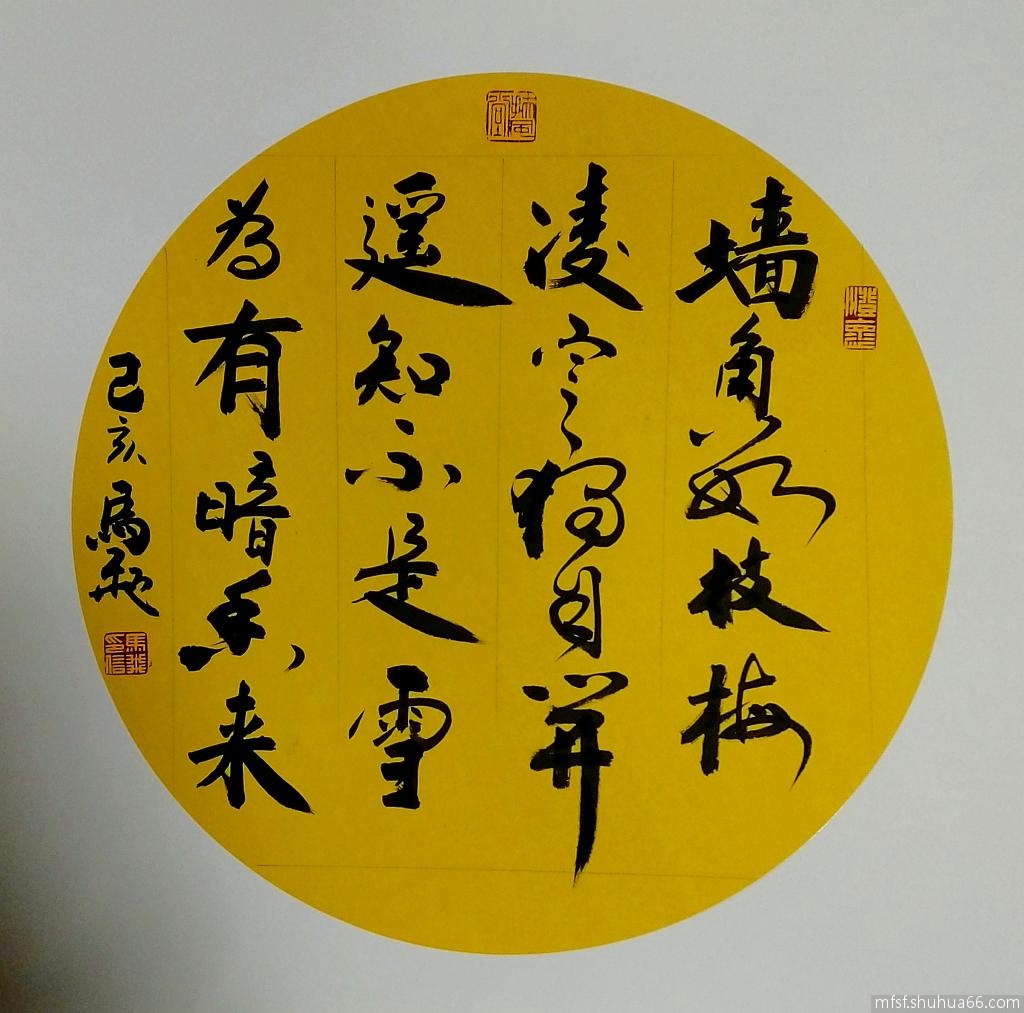 墙角数枝梅
凌寒独自开
遥知不是雪
为有暗香来
己亥马飞
mfsf.shuhua66.com